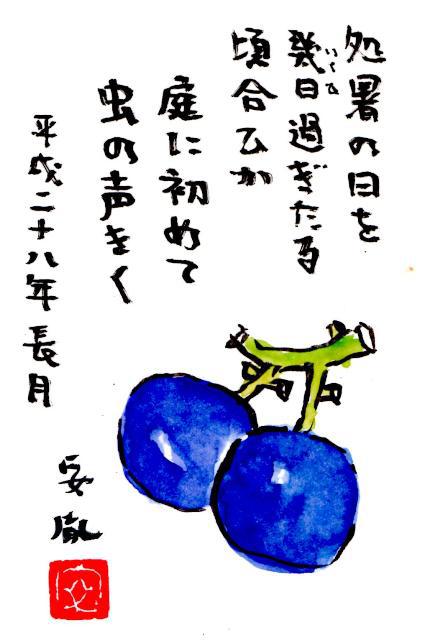 処暑の日を
幾日過ぎたる
いくひ
頃合ひか
庭に初めて
虫の声きく
平成二十八年長月
安胤